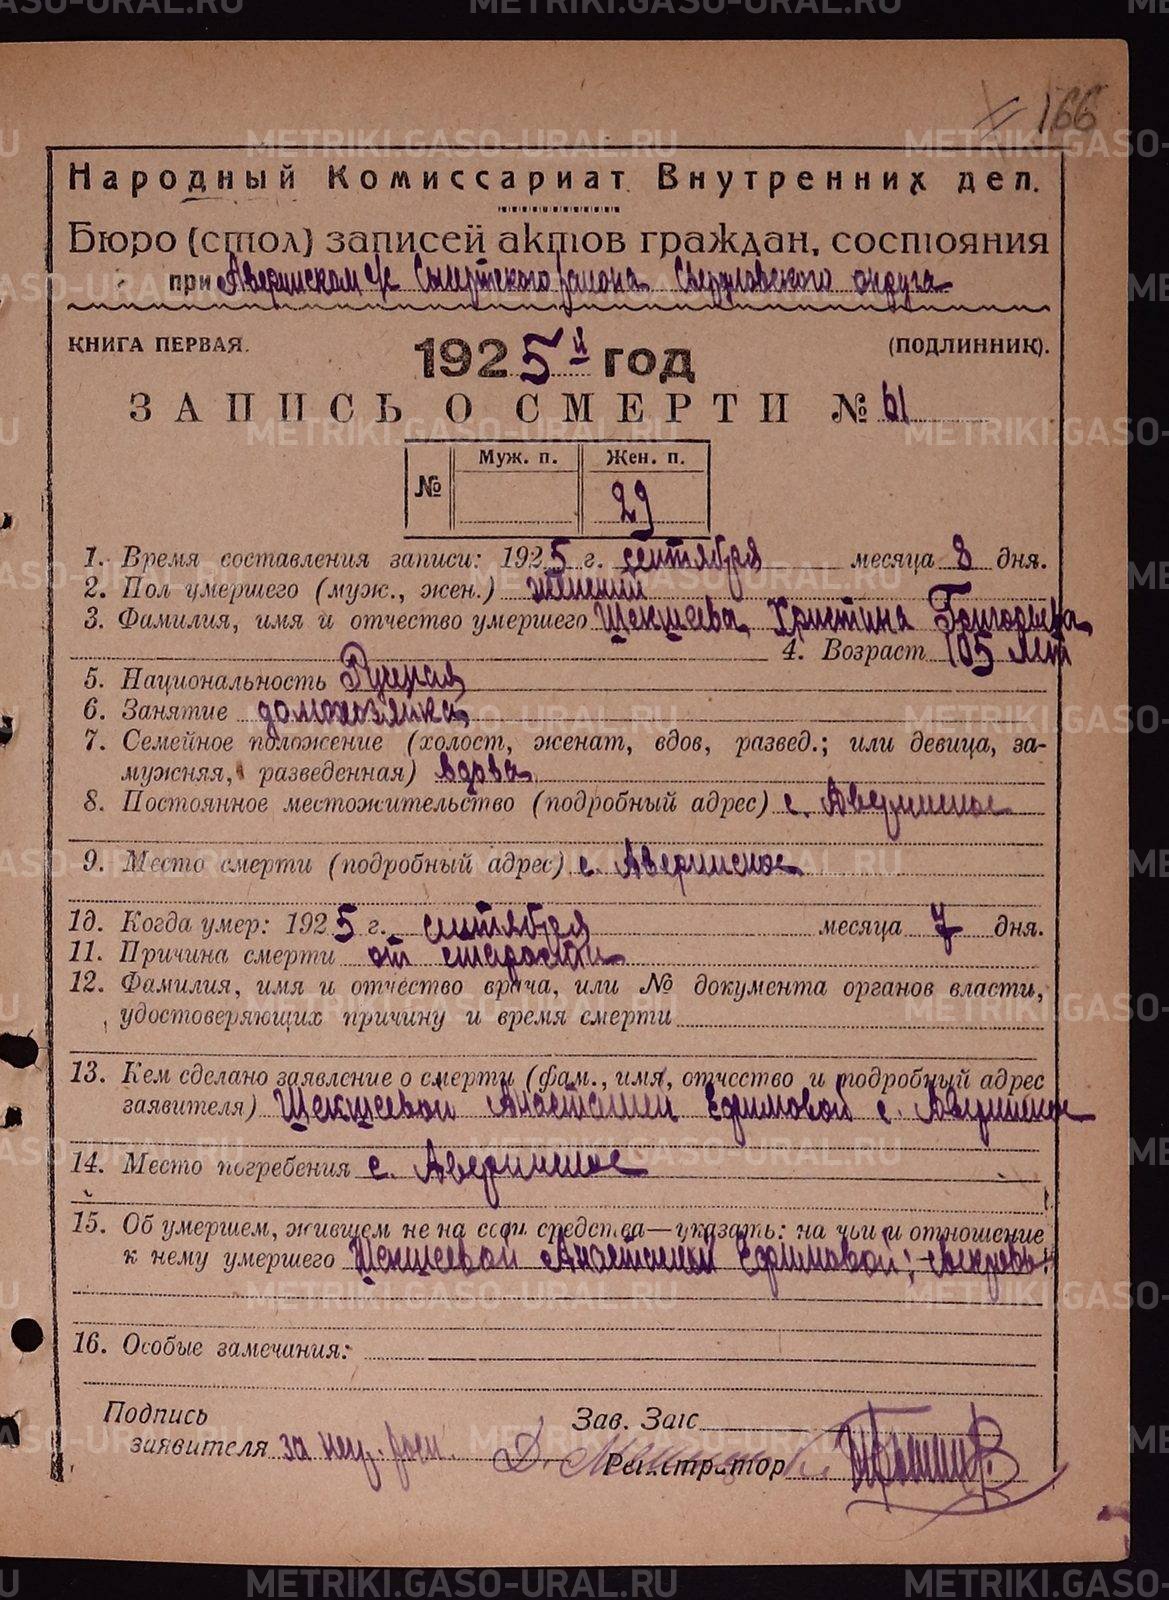 166
Народный Комиссариат Внутренних дел.
Бюро (стол) записей актов граждан, состояния
при Аверинском с/с Сысертского района Свердловского округа
КНИГА ПЕРВАЯ. 1925й год (ПОДЛИННИК).
ЗАПИСЬ О СМЕРТИ № 61
№ Муж. п. Жен. п.
29
1. Время составления записи: 1925 г. сентября месяца 8 дня.
2. Пол умершего (муж., жен.) женский
3. Фамилия, имя и отчество умершего Щекщеева, Христина Григорьева,
4. Возраст 105 лет
5. Национальность Руская
6. Занятие домохозяйка
7. Семейное положение (холост, женат, вдов, развед.; или девица, за-
мужняя, разведенная) вдова
8. Постоянное местожительство (подробный адрес) с. Аверинское
9. Место смерти (подробный адрес) с. Аверинское
10. Когда умер: 1925 г. сентября месяца 7 дня.
11. Причина смерти от старости
12. Фамилия, имя и отчество врача, или № документа органов власти,
удостоверяющих причину и время смерти
13. Кем сделано заявление о смерти (фам., имя, отчество и подробный адрес
заявителя) Щекщеевой Анастасией Ефимовой с. Аверинское
14. Место погребения с. Аверинское
15. Об умершем, жившем не на свои средства—указать: на чьи и отношение
к нему умершего Щекщеевой Анастасией Ефимовой; свекровь.
16. Особые замечания:
Подпись Зав. Загс
заявителя за нег. Регистратор
METRIKI.GASO-URAL.RU